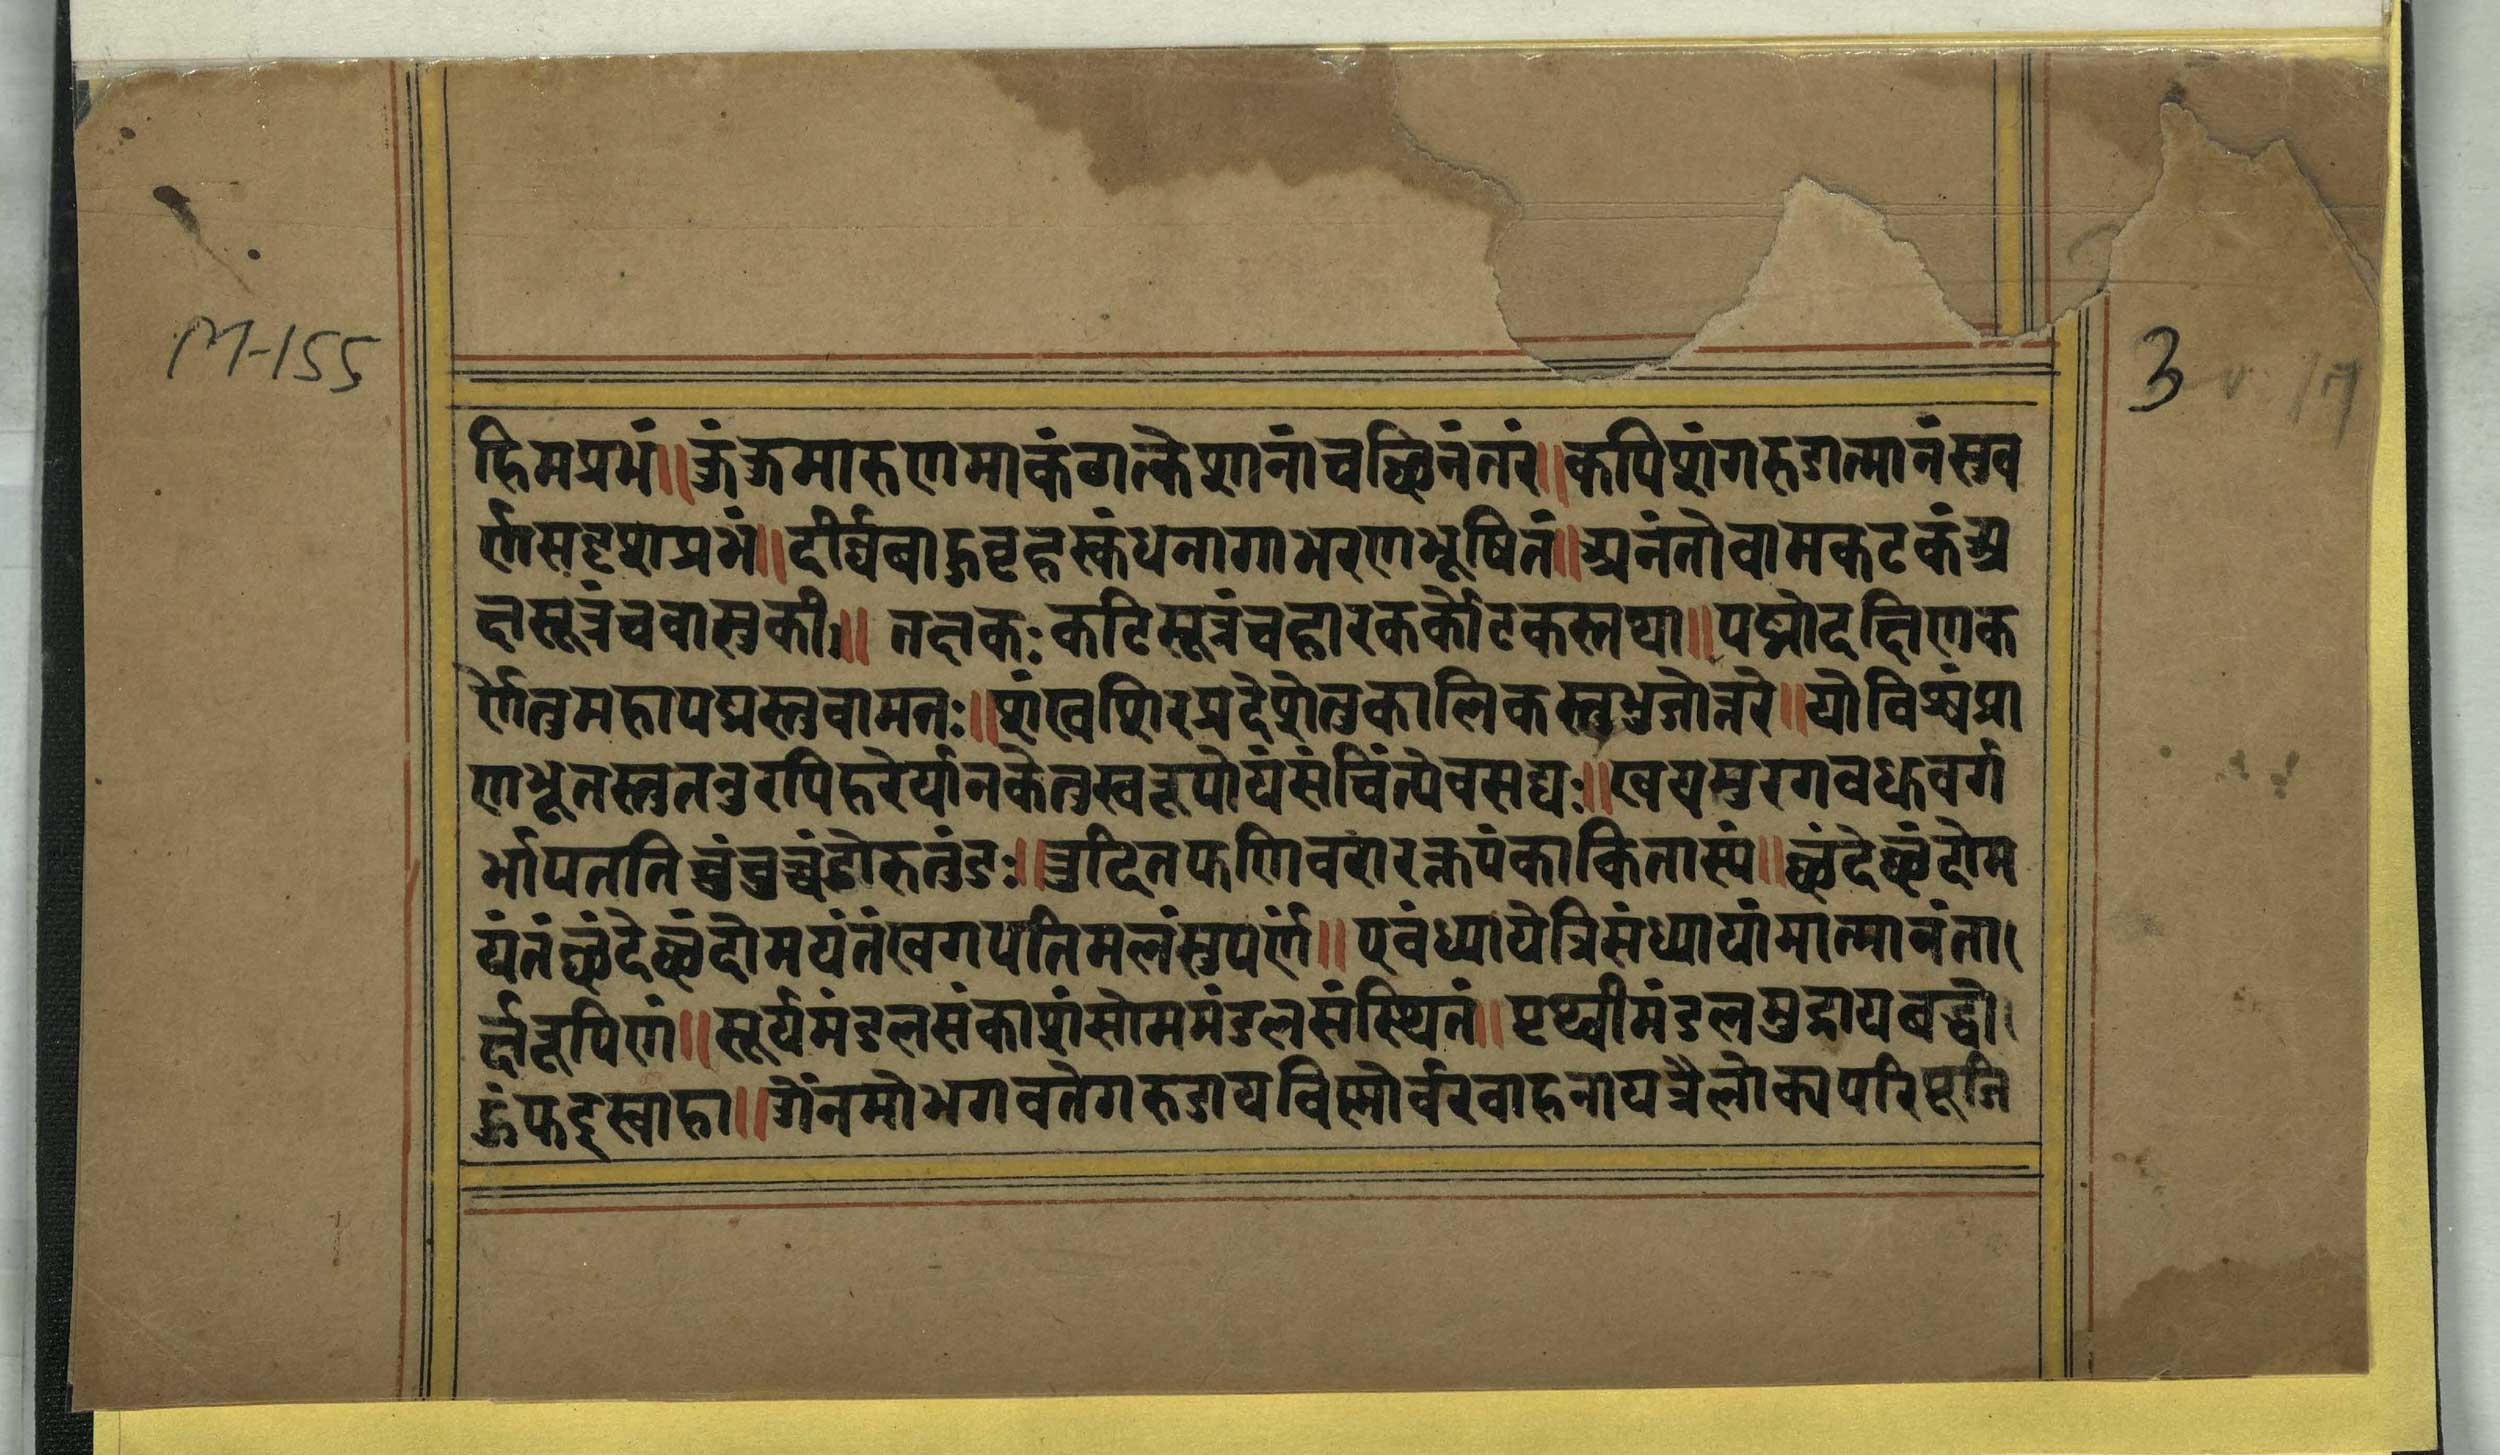 M-155
3
हिमप्रभं॥कुंकुमारुणमाकंठात्केशनांचछिनंतरं॥कपिशंगरुडात्मानंसुव
र्णसदृशप्रभं॥दीर्घबाहुवृहस्कंधनागाभरणभूषितं॥अनंतोवामकटकंय
ज्ञसूत्रंचवासुकी॥तक्षकःकटिसूत्रंचहारककर्कोटकस्तथा॥पद्मोदक्षिणक
र्णेतुमहापद्मस्तुवामतः॥शंखशिरप्रदेशेतुकालिकस्तुभुजोत्तरे॥योविश्वंप्रा
णभूतस्तुतनुरपिहरेर्यानकेतुस्वरूपोयंसंचिंत्येवसद्यः॥खयसुरगवध्रुवर्ग
र्भापतति चुंचुच्चंडोरुतुंडः॥त्रुटितफणिवशारक्तपंकाकितास्यं॥छंदेछंदोम
यंतंछंदेछंदोमयंतंखगपतिमलंसुपर्णं॥एवंध्यायेत्रिसंध्यायांमात्मानंता
र्क्षरूपिणं॥सूर्यमंडलसंकाशंसोममंडलसंस्थितं॥पृथ्वीमंडलमुद्रायबद्धो
हुंफट्स्वाहा॥ॐनमोभगवतेगरुडायविष्णोर्वरवाहनायत्रैलोक्यपरिपूजि